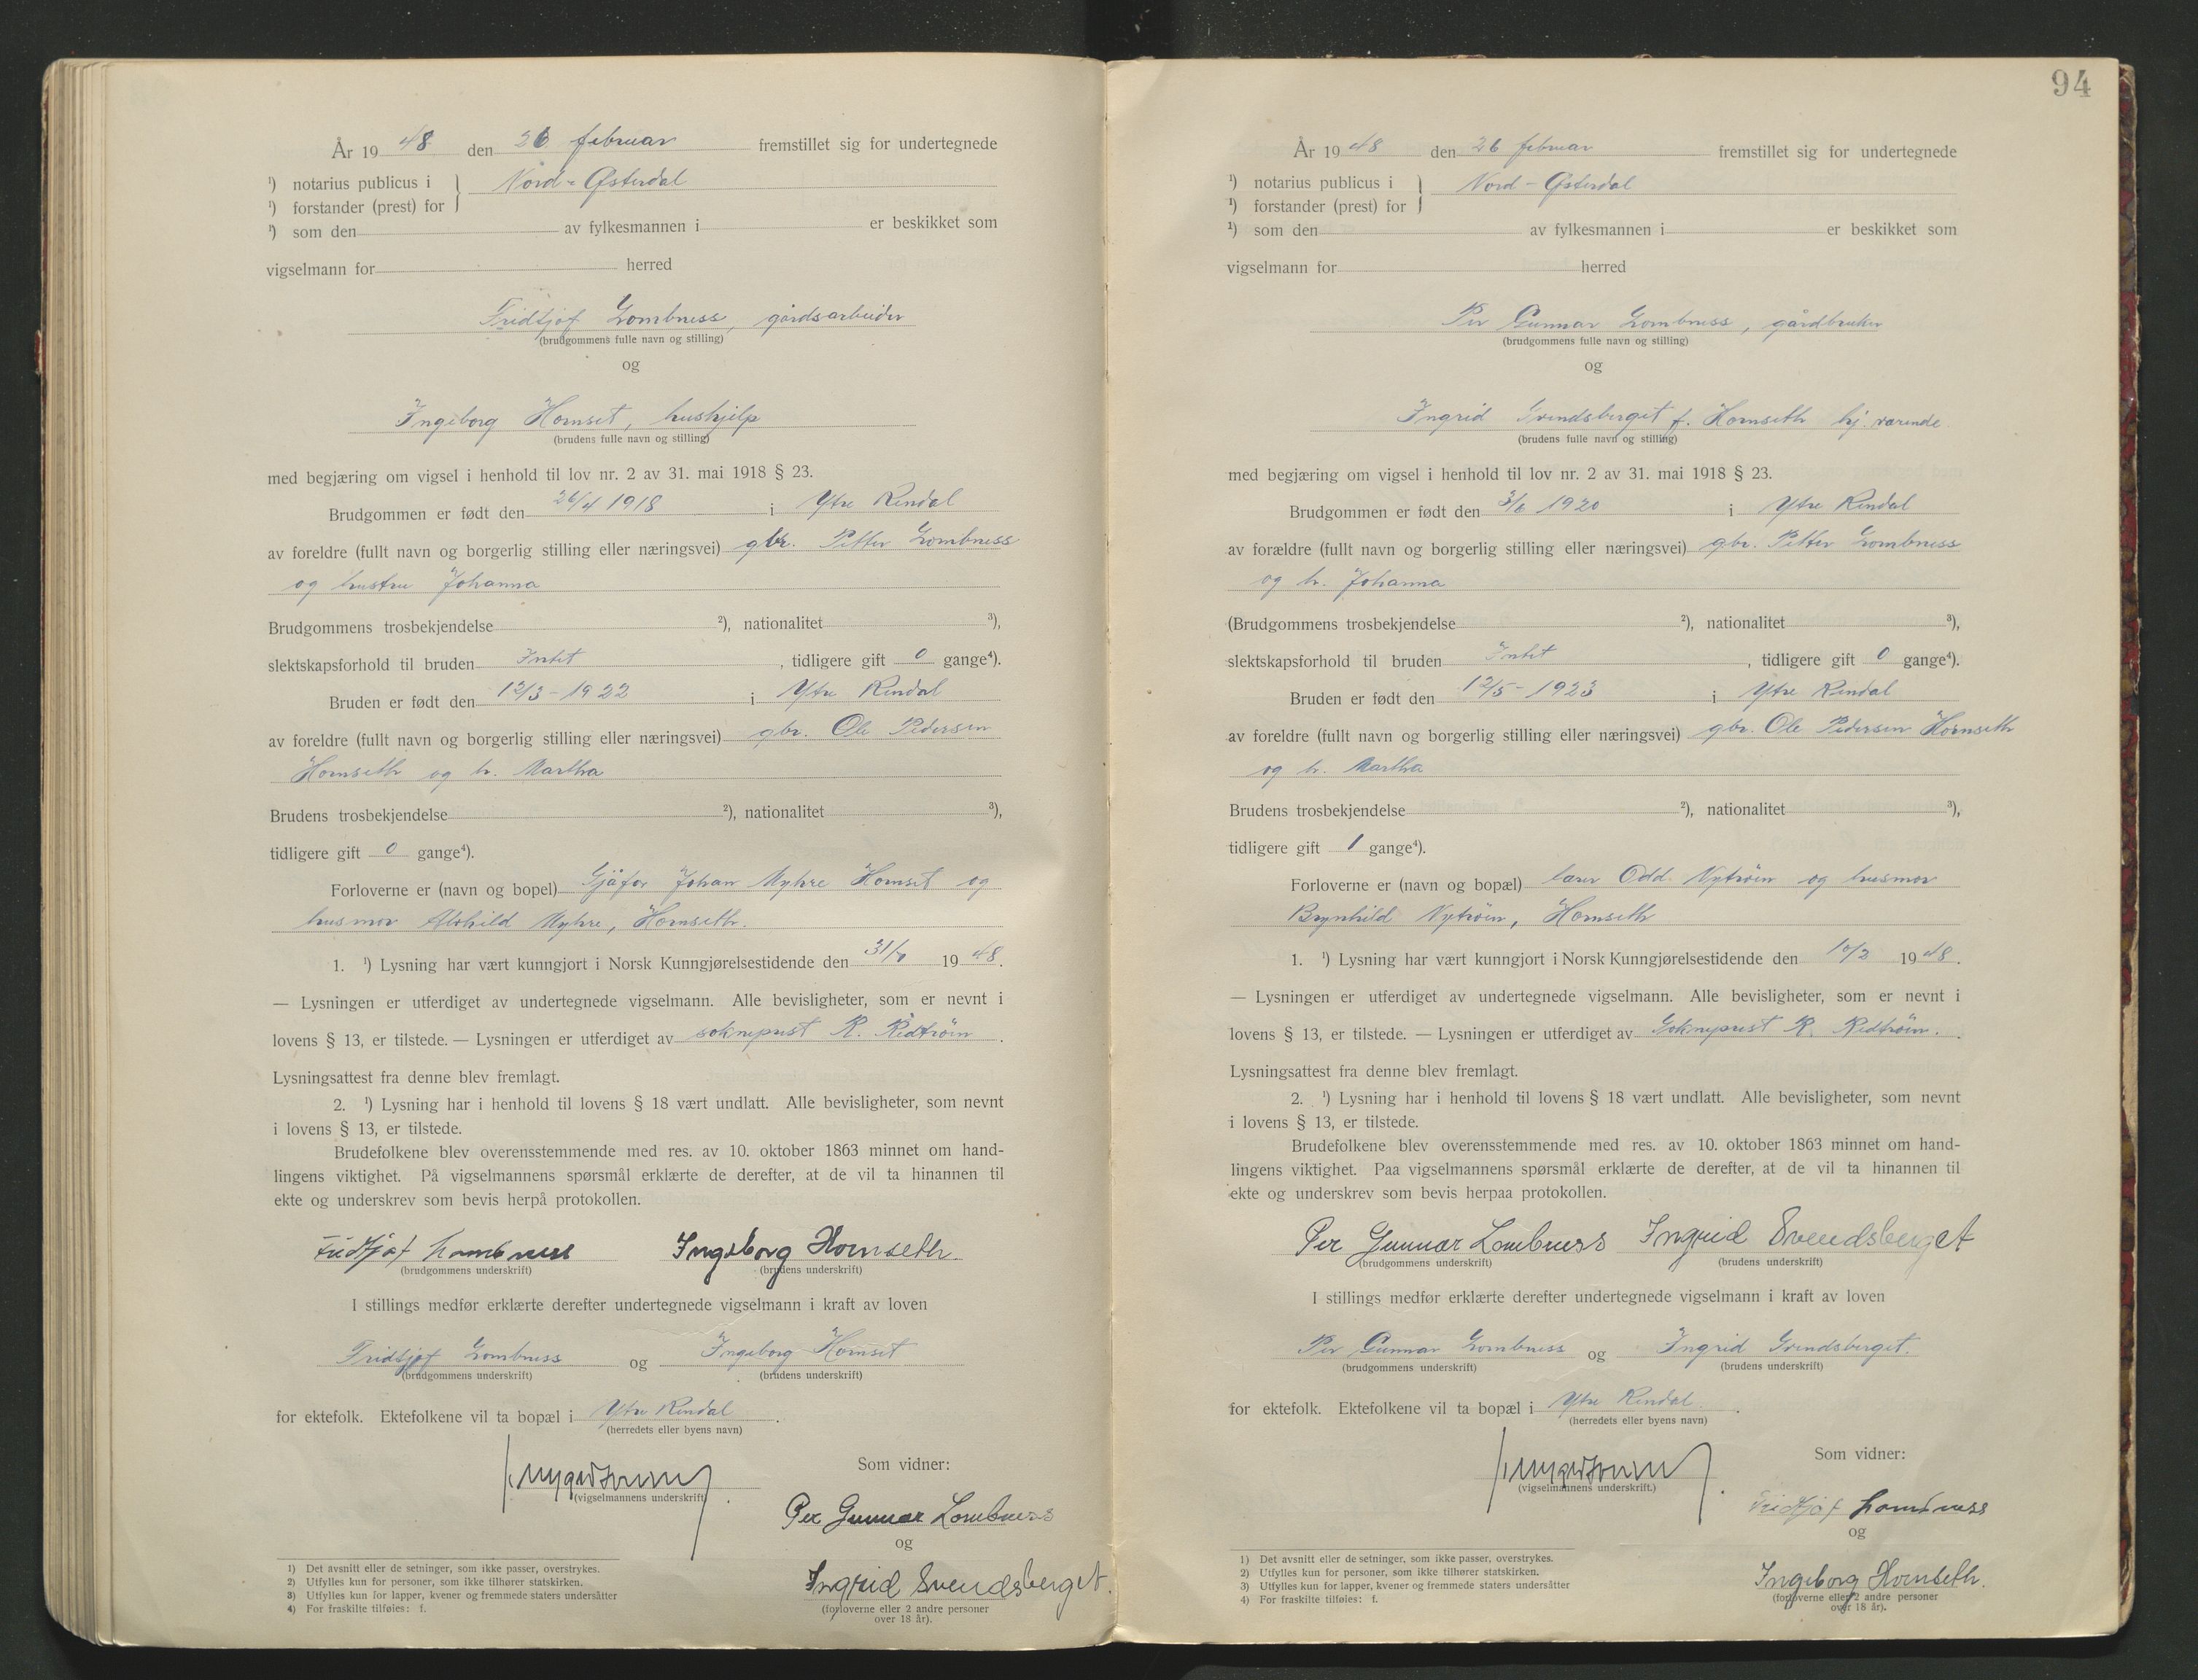 År 19 48 den 26 februar fremstillet sig for undertegnede
¹) notarius publicus i } Nord-Østerdal
¹) forstander (prest) for
¹) som den av fylkesmannen i er beskikket som
vigselmann for herred
Fridtjof Lombness, gårdsarbeider
(brudgommens fulle navn og stilling)
og
Ingeborg Hornset, hushjelp
(brudens fulle navn og stilling)
med begjæring om vigsel i henhold til lov nr. 2 av 31. mai 1918 § 23.
Brudgommen er født den 26/4 1918 i Ytre Rendal
av foreldre (fullt navn og borgerlig stilling eller næringsvei) gbr. Petter Lombness
og hustru Johanna
Brudgommens trosbekjendelse ²), nationalitet ³),
slektskapsforhold til bruden Intet , tidligere gift 0 gange⁴).
Bruden er født den 12/3-1922 i Ytre Rendal
av foreldre (fullt navn og borgerlig stilling eller næringsvei) gbr. Ole Pedersen
Hornseth og h. Martha
Brudens trosbekjendelse ²), nationalitet ³),
tidligere gift 0 gange⁴).
Forloverne er (navn og bopel) Johan Myhre Hornset og
husmor Myhre, Hornseth.
1. ¹) Lysning har vært kunngjort i Norsk Kunngjørelsestidende den 19 48.
— Lysningen er utferdiget av undertegnede vigselmann. Alle bevisligheter, som er nevnt i
lovens § 13, er tilstede. — Lysningen er utferdiget av sokneprest R. Rødtrøen .
Lysningsattest fra denne blev fremlagt.
2. ¹) Lysning har i henhold til lovens § 18 vært undlatt. Alle bevisligheter, som nevnt
i lovens § 13, er tilstede.
Brudefolkene blev overensstemmende med res. av 10. oktober 1863 minnet om hand-
lingens viktighet. På vigselmannens spørsmål erklærte de derefter, at de vil ta hinannen til
ekte og underskrev som bevis herpå protokollen.
Fridtjof Lombness Ingeborg Hornseth
(brudgommens underskrift) (brudens underskrift)
I stillings medfør erklærte derefter undertegnede vigselmann i kraft av loven
Fridtjof Lombness og Ingeborg Hornset
(brudgommens underskrift) (brudens underskrift)
for ektefolk. Ektefolkene vil ta bopæl i Ytre Rendal .
(herredets eller byens navn)
Som vidner:
(vigselmannens underskrift)
Per Gunnar Lombness
og
Ingrid Svendsberget.
(forloverne eller 2 andre personer
over 18 år).
1) Det avsnitt eller de setninger, som ikke passer, overstrykes.
2) Utfylles kun for personer, som ikke tilhører statskirken.
3) Utfylles kun for lapper, kvener og fremmede staters undersåtter
4) For fraskilte tilføles: f.
94
År 19 48 den 26 februar fremstillet sig for undertegnede
¹) notarius publicus i } Nord-Østerdal
¹) forstander (prest) for
¹) som den av fylkesmannen i er beskikket som
vigselmann for herred
Per Gunnar Lombness, gårdbruker
(brudgommens fulle navn og stilling)
og
Ingrid Svendsberget f. Hornseth hj. værende
(brudens fulle navn og stilling)
med begjæring om vigsel i henhold til lov nr. 2 av 31. mai 1918 § 23.
Brudgommen er født den 3/6 1920 i Ytre Rendal
av forældre (fullt navn og borgerlig stilling eller næringsvei) gbr. Petter Lombness
og h. Johanna
(Brudgommens trosbekjendelse ²), nationalitet ³),
slektskapsforhold til bruden Intet , tidligere gift 0 gange⁴).
Bruden er født den 12/5-1923 i Ytre Rendal
av foreldre (fullt navn og borgerlig stilling eller næringsvei) gbr. Ole Pedersen Hornseth
og h. Martha
Brudens trosbekjendelse ²), nationalitet ³),
tidligere gift 1 gange⁴).
Forloverne er (navn og bopæl) lærer Odd Nytrøen og husmor
Brynhild Nytrøen, Hornseth
1. ¹) Lysning har vært kunngjort i Norsk Kunngjørelsestidende den 10/2 19 48.
— Lysningen er utferdiget av undertegnede vigselmann. Alle bevisligheter, som er nevnt i
lovens § 13, er tilstede. — Lysningen er utferdiget av Sokneprest R. Rødtrøen. .
Lysningsattest fra denne blev fremlagt.
2. ¹) Lysning har i henhold til lovens § 18 vært undlatt. Alle bevisligheter, som nevnt
i lovens § 13, er tilstede.
Brudefolkene blev overensstemmende med res. av 10. oktober 1863 minnet om hand-
lingens viktighet. Paa vigselmannens spørsmål erklærte de derefter, at de vil ta hinannen til
ekte og underskrev som bevis herpaa protokollen.
Per Gunnar Lombness Ingrid Svendsberget
(brudgommens underskrift) (brudens underskrift)
I stillings medfør erklærte derefter undertegnede vigselmann i kraft av loven
Per Gunnar Lombness og Ingrid Svendsberget.
(brudgommens underskrift) (brudens underskrift)
for ektefolk. Ektefolkene vil ta bopæl i Ytre Rendal .
(herredets eller byens navn)
Som vidner:
(vigselmannens underskrift.)
Fridtjof Lombness
og
Ingeborg Hornseth.
(forloverne eller 2 andre personer
over 18 år).
1) Det avsnitt eller de setninger, som ikke passer, overstrykes.
2) Utfylles kun for personer, som ikke tilhører statskirken.
3) Utfylles kun for lapper, kvener og fremmede staters undersåtter
4) For fraskilte tilføles: f.